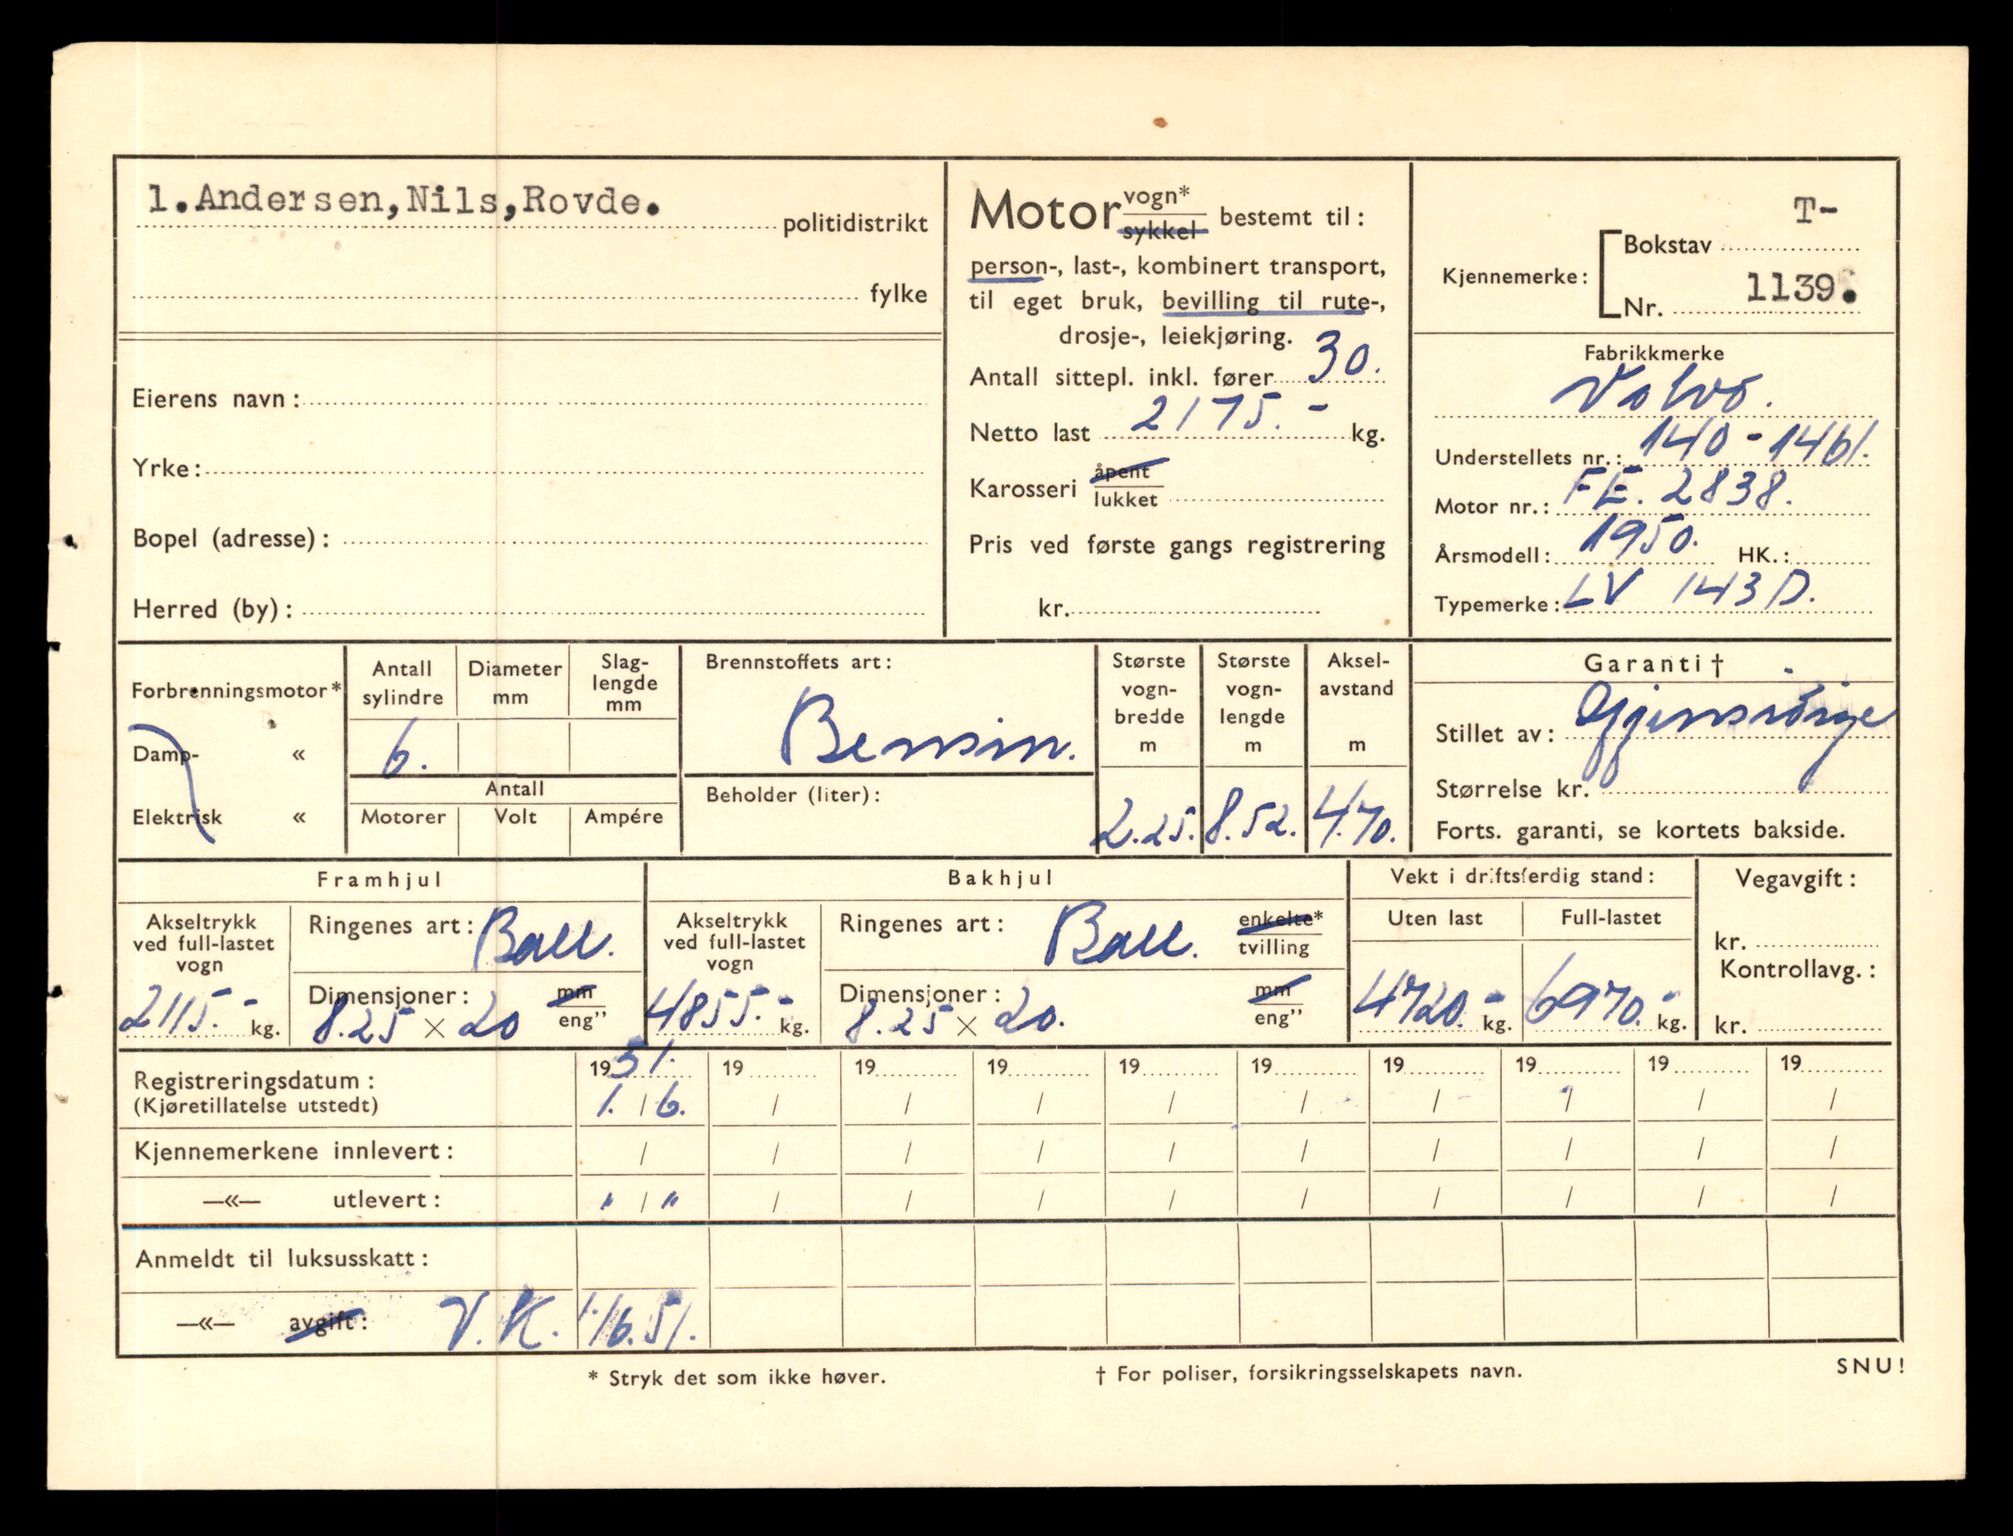 1. Andersen, Nils, Rovde. politidistrikt
fylke
Eierens navn:
Yrke:
Bopel (adresse):
Herred (by):
Motor vogn* sykkel bestemt til:
person-, last-, kombinert transport,
til eget bruk, bevilling til rute-,
drosje-, leiekjøring.
Antall sittepl. inkl. fører 30.
Netto last 2175.- kg.
Karosseri åpent lukket
Pris ved første gangs registrering
kr.
Kjennemerke: Bokstav T-
Nr. 1139.
Fabrikkmerke
Volvo.
Understellets nr.: 140-1461.
Motor nr.: FE. 2838.
Årsmodell: 1950. HK.:
Typemerke: LV 143 D.
Forbrenningsmotor*
Damp- «
Elektrisk «
Antall sylindre
6.
Diameter mm
Slag-
lengde
mm
Antall
Motorer Volt Ampére
Brennstoffets art:
Bensin.
Beholder (liter):
Største
vogn-
bredde
m
2.25.
Største
vogn-
lengde
m
8.52.
Aksel-
avstand
m
4.70.
Garanti †
Stillet av:
Størrelse kr.
Forts. garanti, se kortets bakside.
Framhjul
Akseltrykk
ved full-lastet
vogn
2115.- kg.
Ringenes art: Ball.
Dimensjoner: mm
8.25 × 20 eng"
Bakhjul
Akseltrykk
ved full-lastet
vogn
4855.- kg.
Ringenes art: Ball. enkelte* tvilling
Dimensjoner: mm
8.25 × 20. eng"
Vekt i driftsferdig stand:
Uten last Full-lastet
4720.- kg. 6970.- kg.
Vegavgift:
kr.
Kontrollavg.:
kr.
19 51. 19 19 19 19 19 19 19 19 19
Registreringsdatum:
(Kjøretillatelse utstedt) 1. / 6. / / / / / / / / /
Kjennemerkene innlevert: / / / / / / / / / /
—«— utlevert: " / " / / / / / / / / /
Anmeldt til luksusskatt:
—«— avgift: V.K. 1./6.51.
* Stryk det som ikke høver.
† For poliser, forsikringsselskapets navn.
SNU!